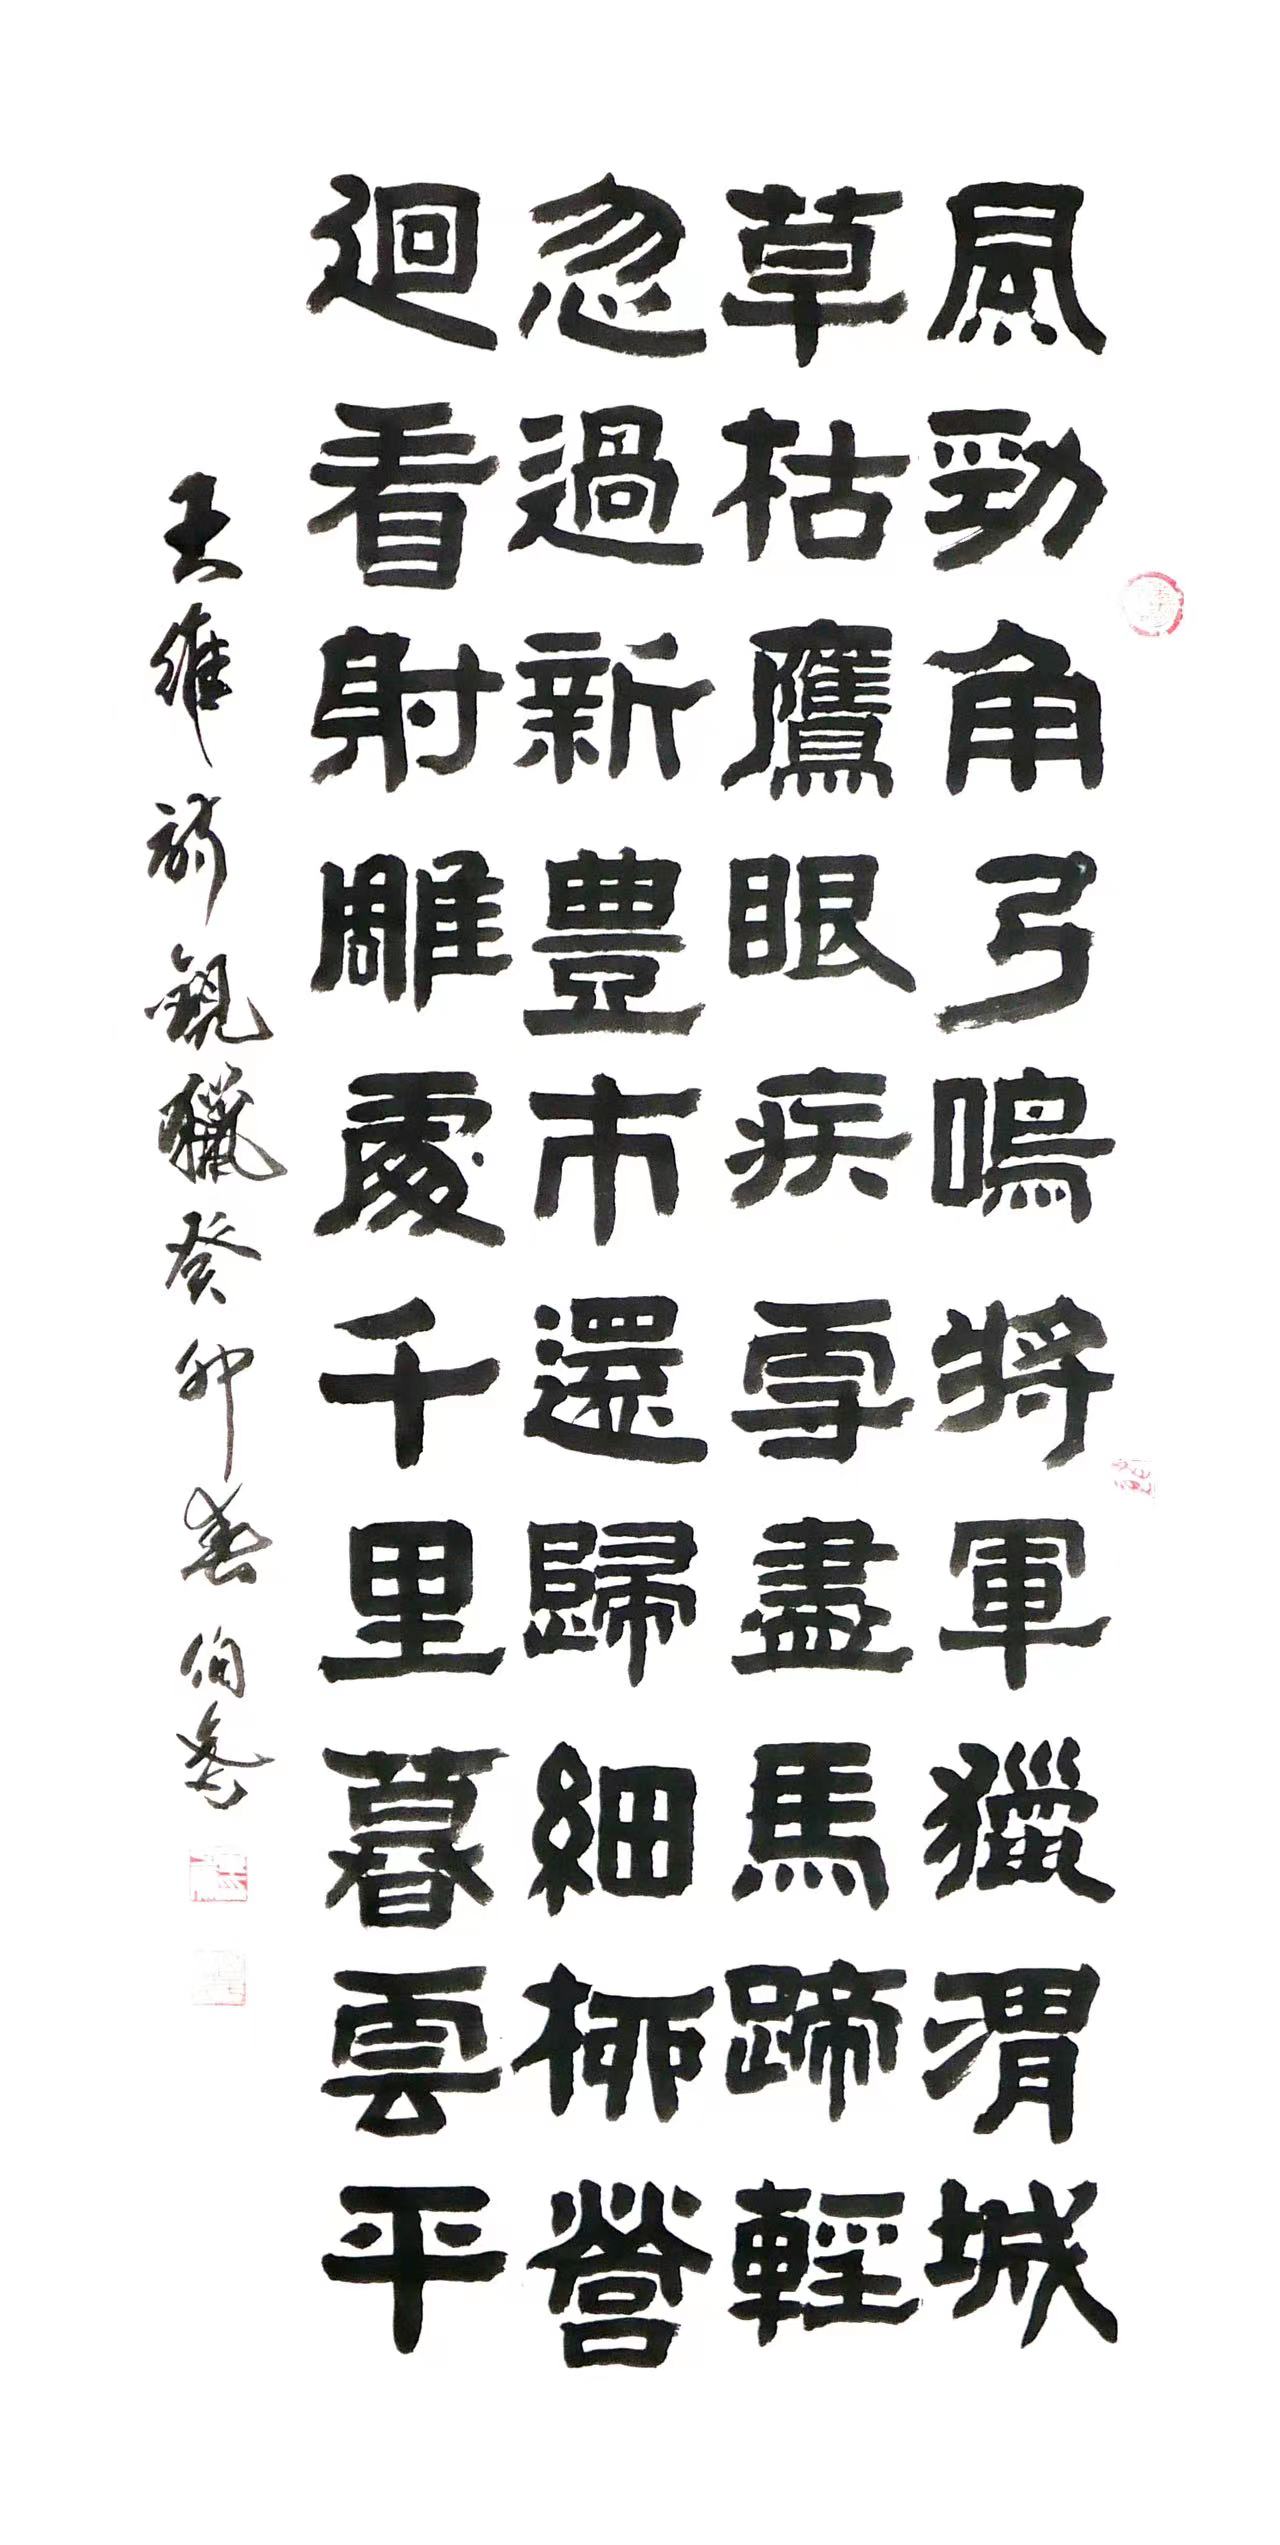 風勁角弓鳴將軍獵渭城
草枯鷹眼疾雪盡馬蹄輕
忽過新豐市還歸細柳營
迴看射雕處千里暮雲平
王維詩觀獵癸卯春伯